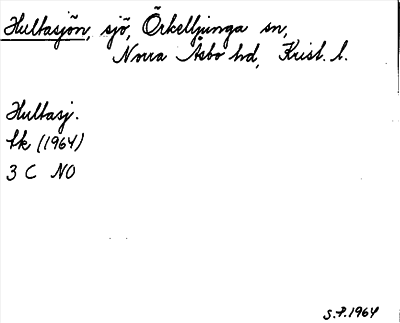 Hultasjön, sjö, Örkelljunga sn,
Norra Åsbo hd, Krist. l.
Hultasj.
tk (1964)
3 C NO
S.P. 1964